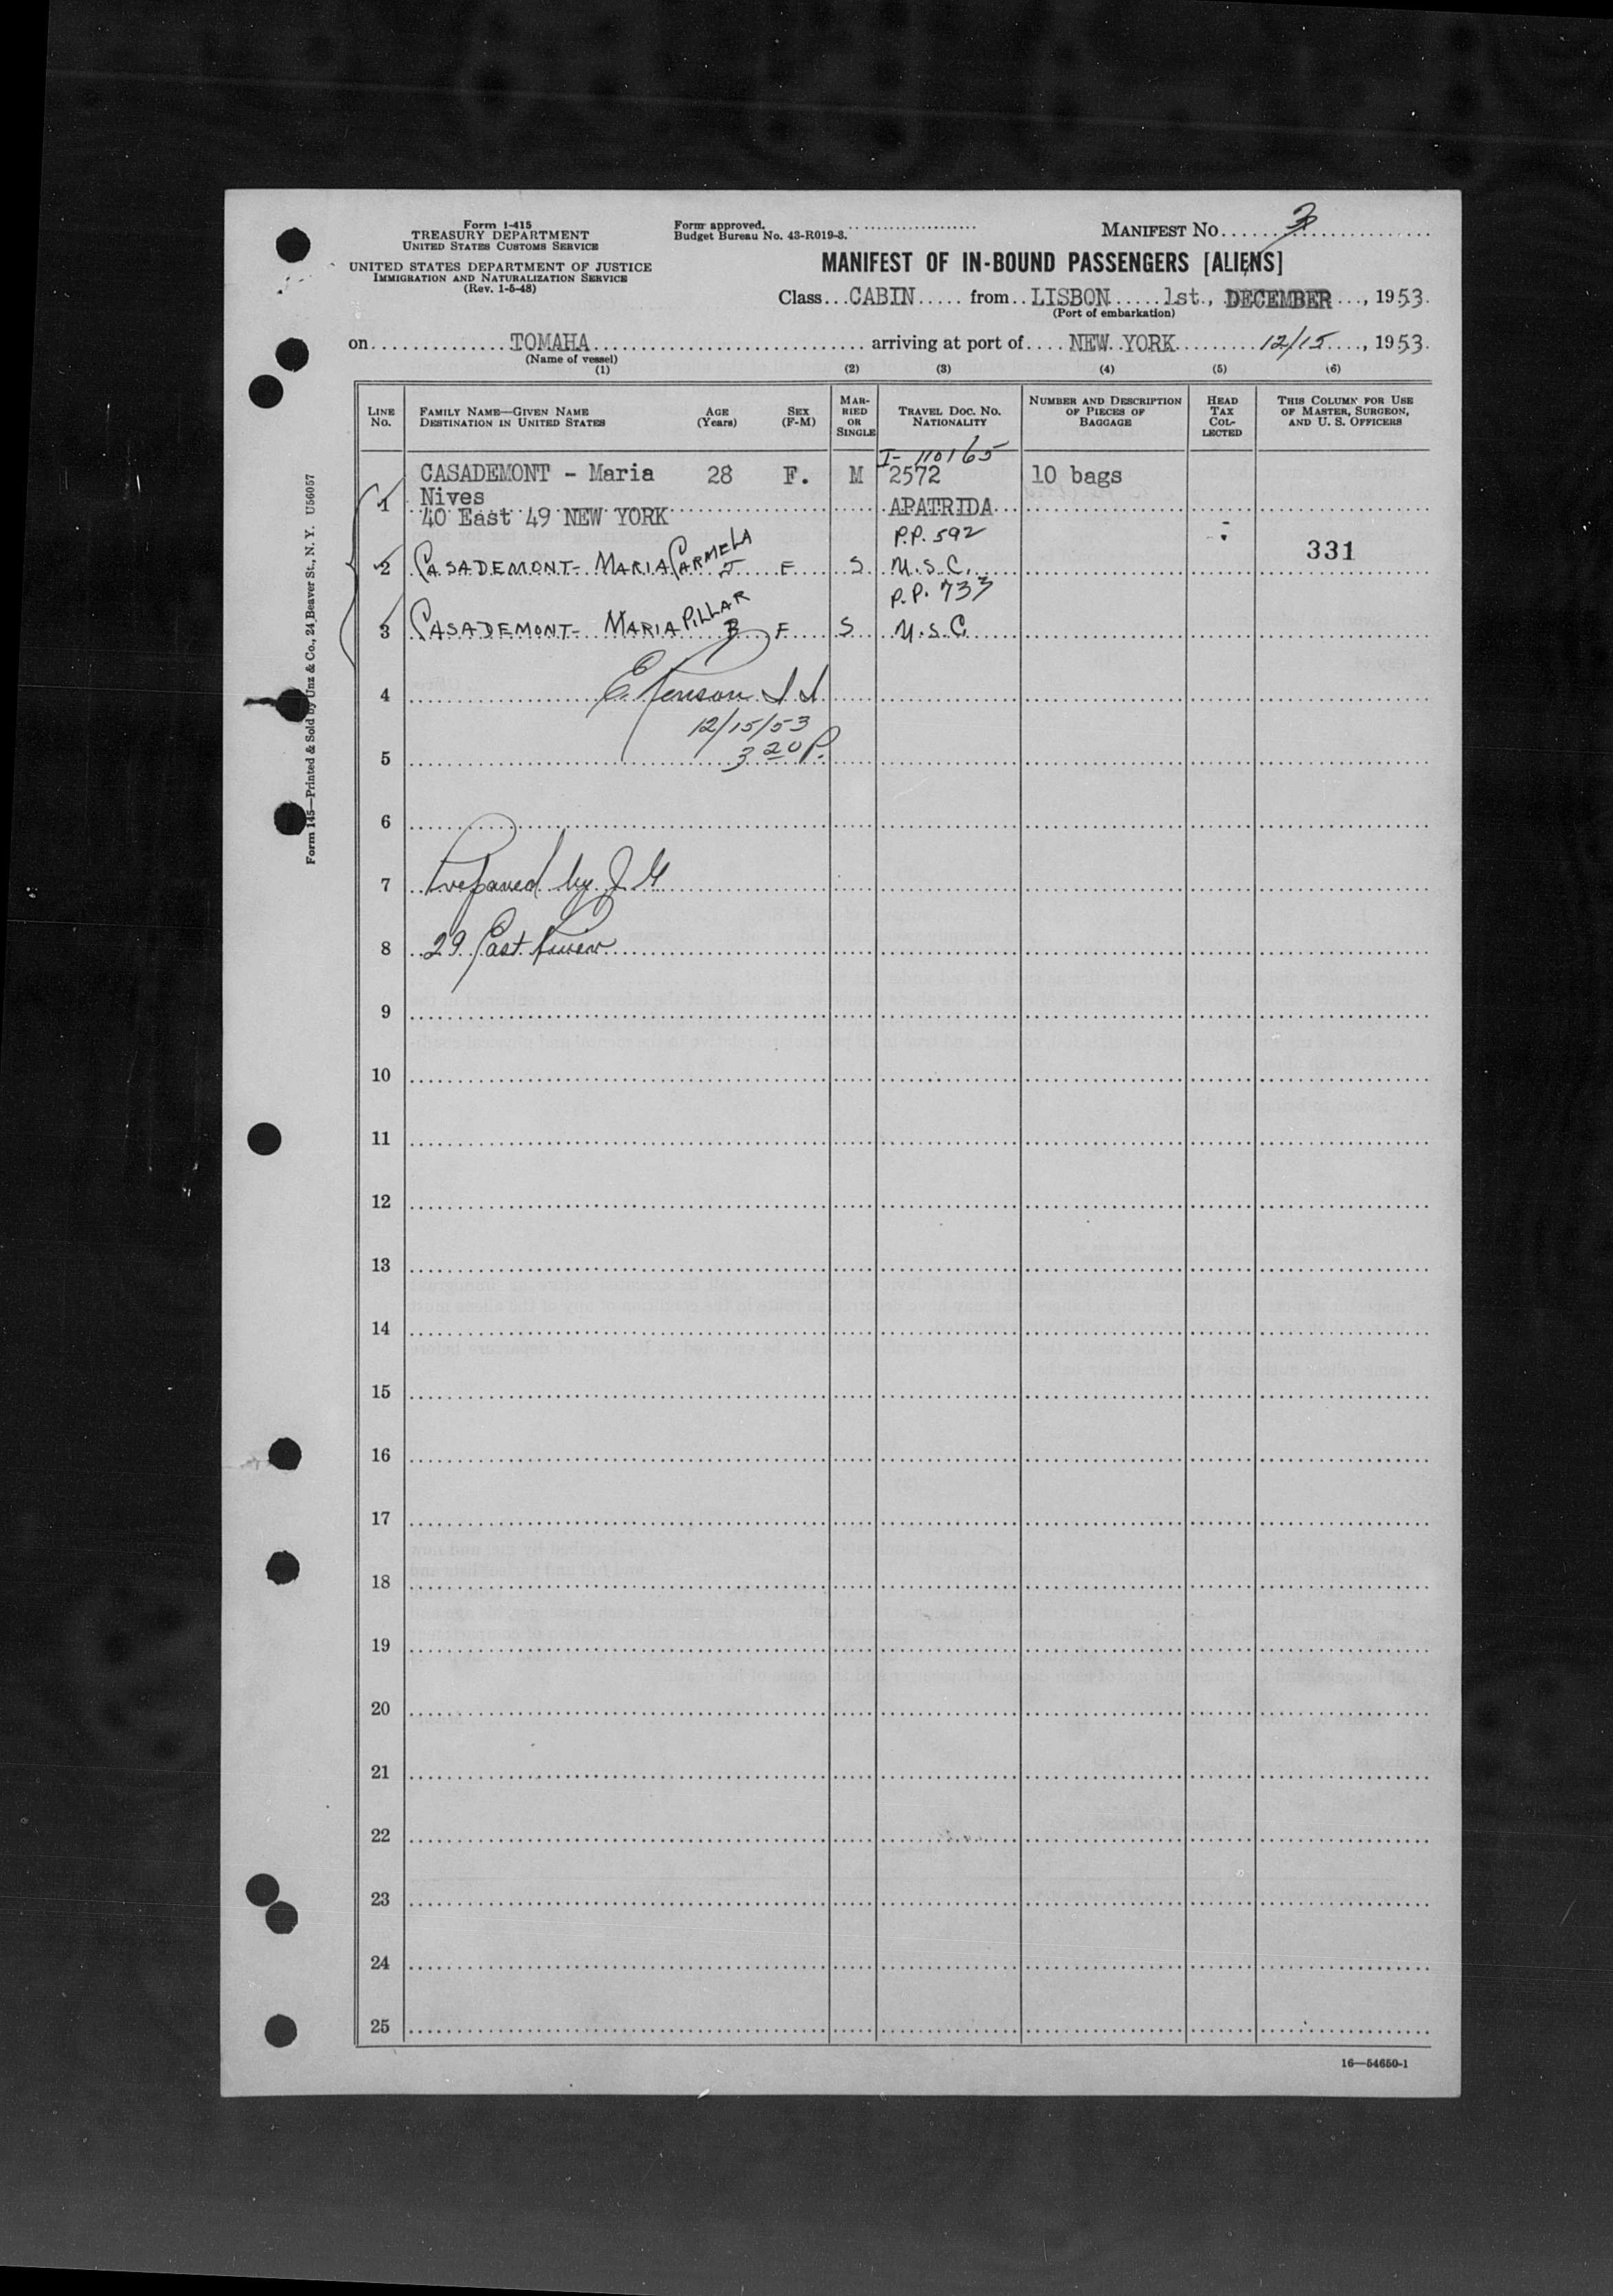 Form I-415
TREASURY DEPARTMENT
UNITED STATES CUSTOMS SERVICE
UNITED STATES DEPARTMENT OF JUSTICE
IMMIGRATION AND NATURALIZATION SERVICE
(Rev. 1-5-48)
Form approved.
Budget Bureau No. 43-R019-3.
MANIFEST No. 3
MANIFEST OF IN-BOUND PASSENGERS [ALIENS]
Class CABIN from LISBON 1st., DECEMBER, 1953.
(Port of embarkation)
on TOMAHA arriving at port of NEW YORK 12/15, 1953.
(Name of vessel)
(1) (2) (3) (4) (5) (6)
LINE No. FAMILY NAME—GIVEN NAME DESTINATION IN UNITED STATES AGE (Years) SEX (F-M) MARRIED OR SINGLE TRAVEL DOC. NO. NATIONALITY NUMBER AND DESCRIPTION OF PIECES OF BAGGAGE HEAD TAX COLLECTED THIS COLUMN FOR USE OF MASTER, SURGEON, AND U. S. OFFICERS
I- 110165
CASADEMONT - Maria 28 F. M 2572 10 bags
1 Nives APATRIDA
40 East 49 NEW YORK
P.P. 592
2 CASADEMONT- MARIA CARMELA F S U.S.C. 331
P.P. 733
3 CASADEMONT- MARIA PILLAR F S U.S.C.
4
12/15/53
5 3 20 P.
6
7 Prepared by J. G
8 29 East River
9
10
11
12
13
14
15
16
17
18
19
20
21
22
23
24
25
16—54650-1
Form 145—Printed & Sold by Unz & Co., 24 Beaver St., N. Y. U56057